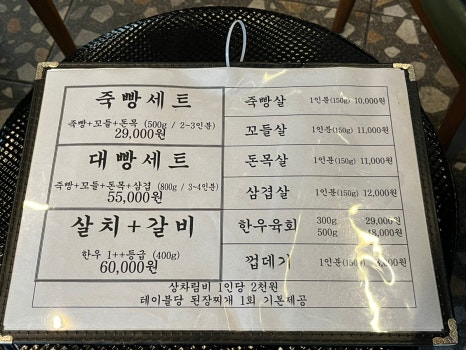 죽빵세트
죽빵+꼬들+돈목 (500g / 2~3인분)
29,000원
대빵세트
죽빵+꼬들+돈목+삼겹 (800g / 3~4인분)
55,000원
살치+갈비
한우 1++등급 (400g)
60,000원
죽빵살 1인분(150g) 10,000원
꼬들살 1인분(150g) 11,000원
돈목살 1인분(150g) 11,000원
삼겹살 1인분(150g) 12,000원
한우육회 300g 29,000원
500g 48,000원
껍데기 1인분(150g)
상차림비 1인당 2천원
테이블당 된장찌개 1회 기본제공